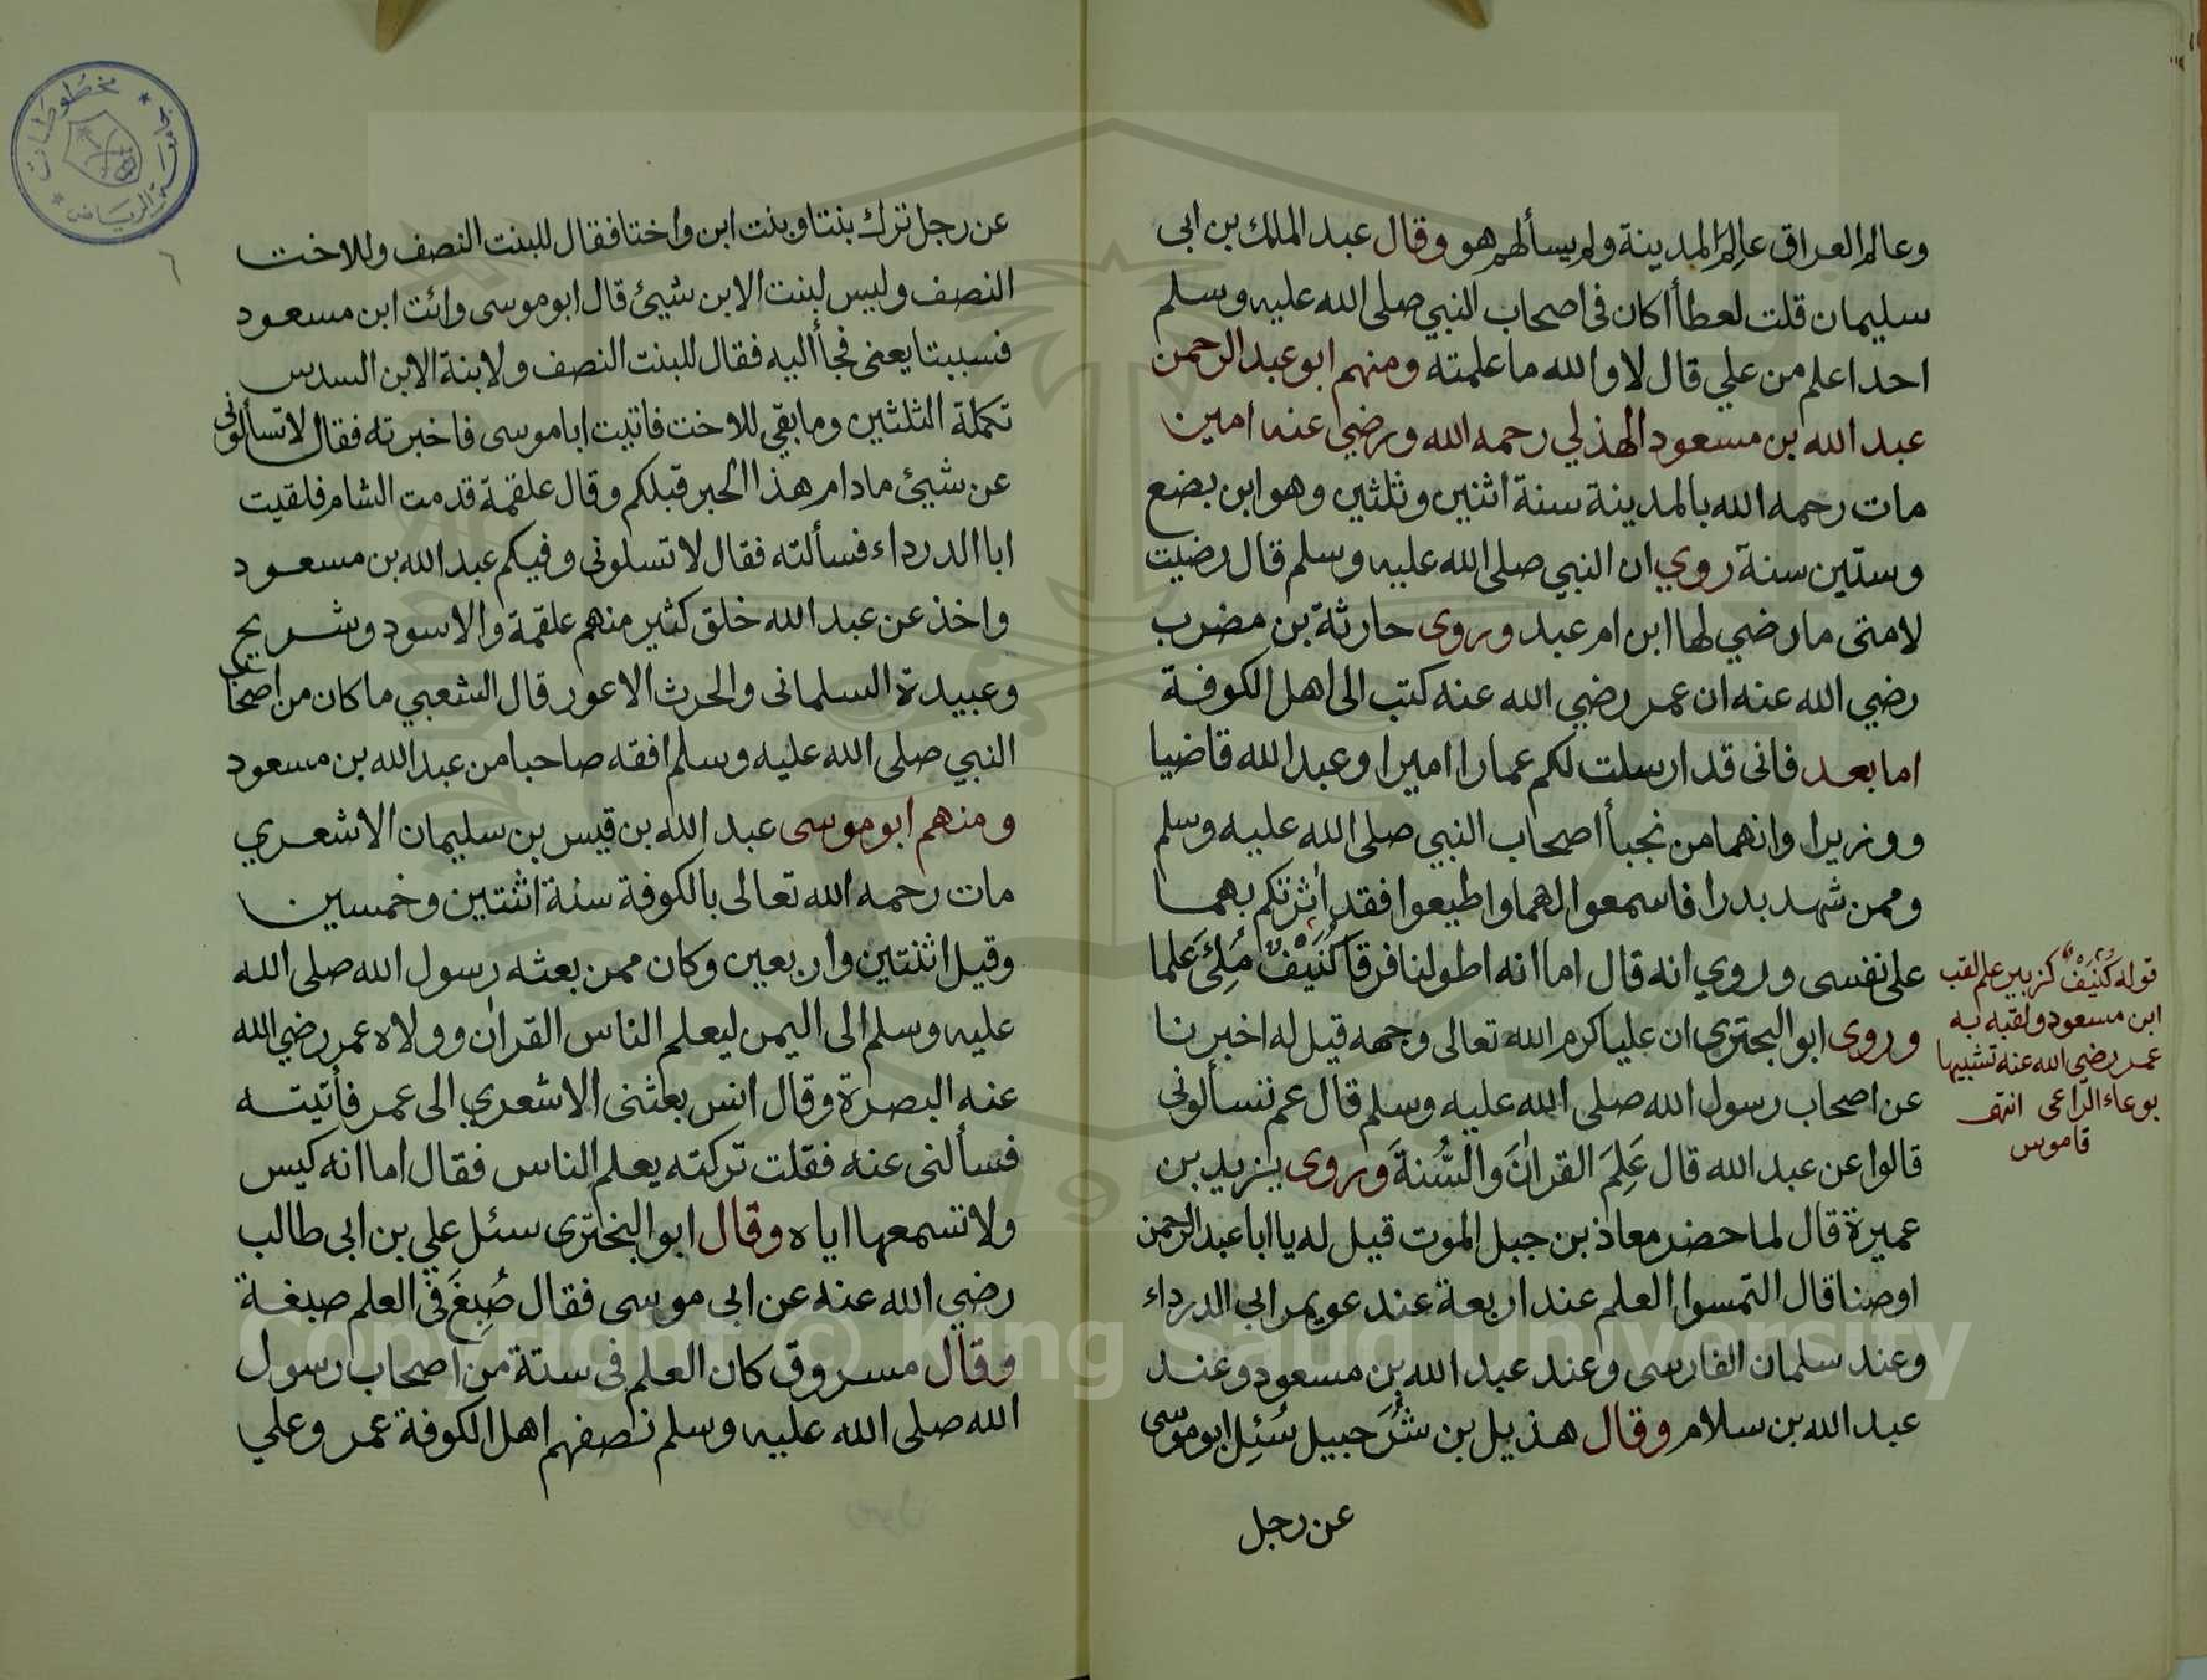 وعالم العراق عالم المدينة ولم يسألهم هو وقال عبد الملك بن ابى
سليمان قلت لعطأ اكان فى اصحاب النبي صلى الله عليه وسلم
احدا علم من علي قال لا والله ما علمته ومنهم ابو عبد الرحمن
عبد الله بن مسعود الهذلي رحمه الله ورضي عنه امين
مات رحمه الله بالمدينة سنة اثنين وثلثين وهو ابن بضع
وستين سنة روي ان النبي صلى الله عليه وسلم قال رضيت
لامتى ما رضي لها ابن ام عبد وروى حارثة بن مضرب
رضي الله عنه ان عمر رضي الله عنه كتب الى اهل الكوفة
اما بعد فانى قد ارسلت لكم عمارا اميرا وعبد الله قاضيا
ووزيرا وانهما من نجبأ اصحاب النبي صلى الله عليه وسلم
وممن شهد بدرا فاسمعوا لهما واطيعوا فقد أثرتكم بهما
على نفسى وروي انه قال اما انه اطولنا فرقا كُنَيْفٌ مُلِئَ علما
وروى ابو البحتري ان عليا كرم الله تعالى وجهه قيل له اخبرنا
عن اصحاب رسول الله صلى الله عليه وسلم قال عم تسألونى
قالوا عن عبد الله قال عَلِمَ القرانَ والسُّنةَ وروى يزيد بن
عميرة قال لما حضر معاذ بن جبل الموت قيل له يا ابا عبد الرحمن
اوصنا قال التمسوا العلم عند اربعة عند عويمر ابى الدرداء
وعند سلمان الفارسى وعند عبد الله بن مسعود وعند
عبد الله بن سلام وقال هذيل بن شُرَحبيل سُئِل ابو موسى
عن رجل
قوله كُنَيْفٌ كزبير علم لقب
ابن مسعود ولقبه به
عمر رضي الله عنه تشبيها
بوعاء الراعى انتهى
قاموس
عن رجل ترك بنتا وبنت ابن واختا فقال للبنت النصف وللاخت
النصف وليس لبنت الابن شيئ قال ابو موسى وائت ابن مسعود
فسيبتا يعنى فجأ اليه فقال للبنت النصف ولابنة الابن السدس
تكملة الثلثين وما بقي للاخت فاتيت ابا موسى فاخبرته فقال لا تسألونى
عن شيئ ما دام هذا الحبر قبلكم وقال علقمة قدمت الشام فلقيت
ابا الدرداء فسألته فقال لا تسلونى وفيكم عبد الله بن مسعود
واخذ عن عبد الله خلق كثير منهم علقمة والاسود وشريح
وعبيدة السلمانى والحرث الاعور قال الشعبي ما كان من اصحاب
النبي صلى الله عليه وسلم افقه صاحبا من عبد الله بن مسعود
ومنهم ابو موسى عبد الله بن قيس بن سليمان الاشعري
مات رحمه الله تعالى بالكوفة سنة اثنتين وخمسين
وقيل اثنتين واربعين وكان ممن بعثه رسول الله صلى الله
عليه وسلم الى اليمن ليعلم الناس القران وولاه عمر رضي الله
عنه البصرة وقال انس بعثنى الاشعري الى عمر فأتيته
فسألنى عنه فقلت تركته يعلم الناس فقال اما انه كيس
ولا تسمعها اياه وقال ابو البختري سئل علي بن ابى طالب
رضي الله عنه عن ابى موسى فقال صُبِغَ فى العلم صبغة
وقال مسروق كان العلم فى ستة من اصحاب رسول
الله صلى الله عليه وسلم نصفهم اهل الكوفة عمر وعلي
مخطوطات
الرياض
٦
Copyright © King Saud University